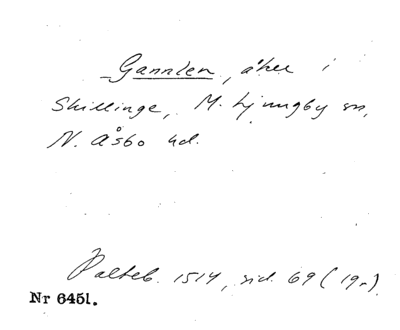 Gannlen, åker i
Skillinge, M. Ljungby sn,
N. Åsbo hd.
Palteb. 1514, sid. 69 (19r).
Nr 6451.